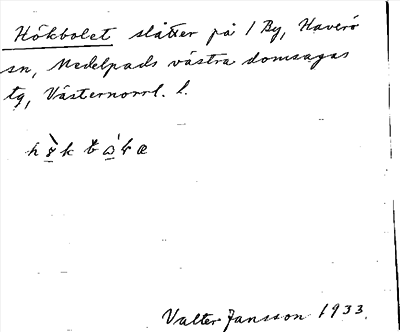 Hökbolet slåtter på 1 By, Haverö
sn, Medelpads västra domsagas
tg, Västernorrl. l.
Valter Jansson 1933.